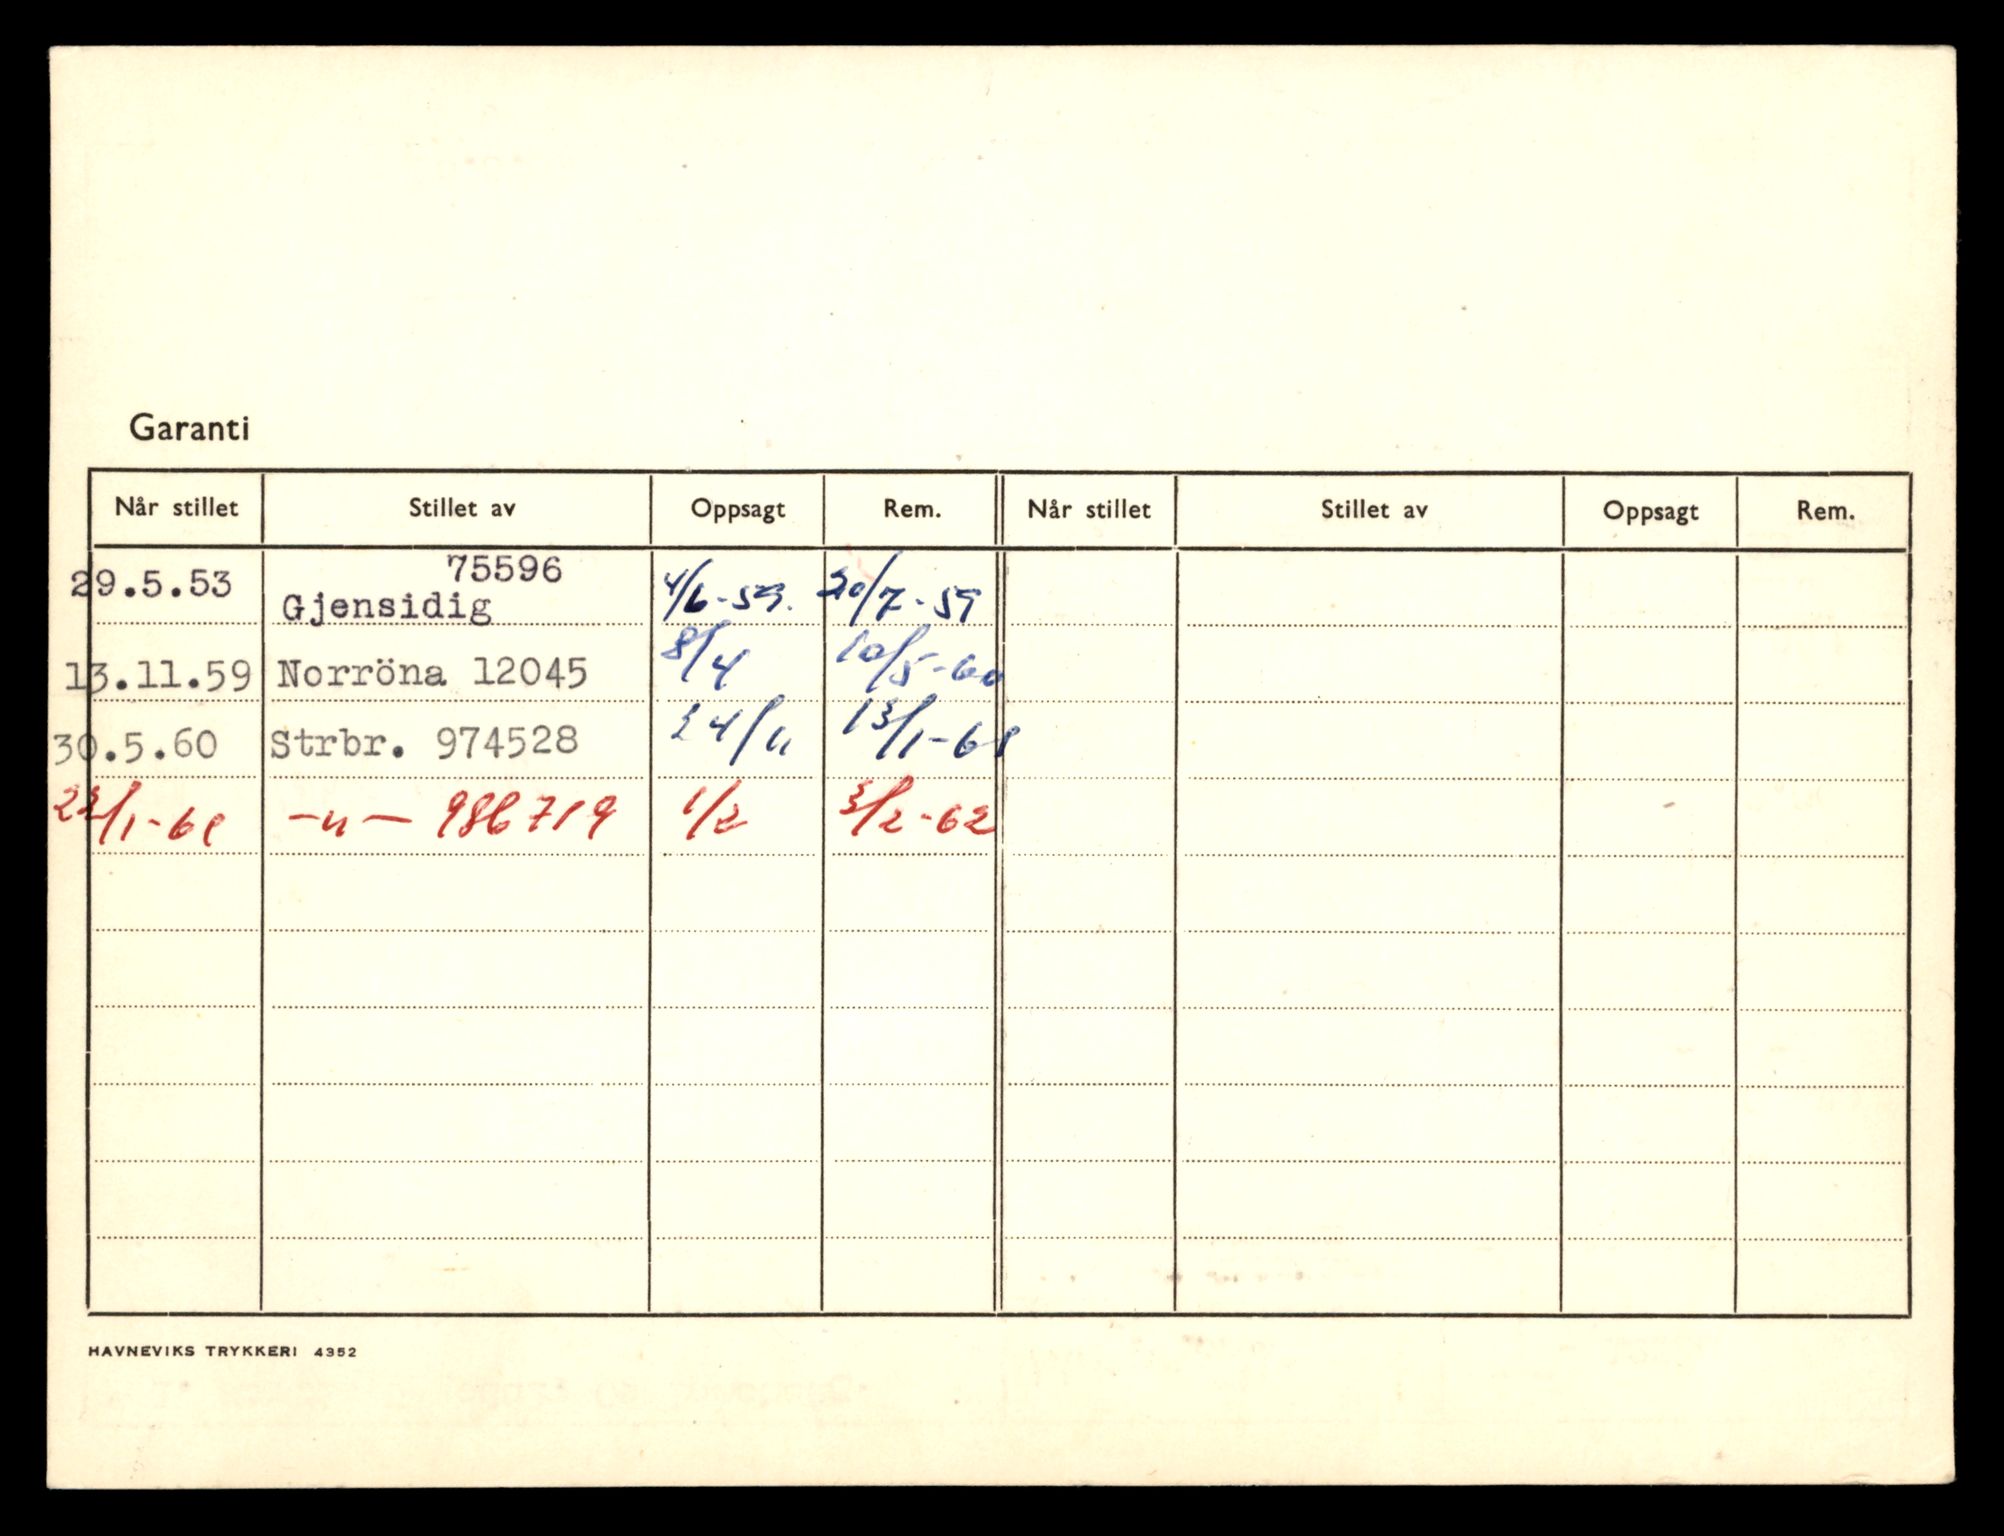 Garanti
Når stillet Stillet av Oppsagt Rem. Når stillet Stillet av Oppsagt Rem.
75596
29.5.53 Gjensidig 4/6-59. 20/7-59
13.11.59 Norröna 12045 8/4 10/5-60
30.5.60 Strbr. 974528 24/11 13/1-61
23/1-61 -"- 986719 1/2 3/2-62
HAVNEVIKS TRYKKERI 4352